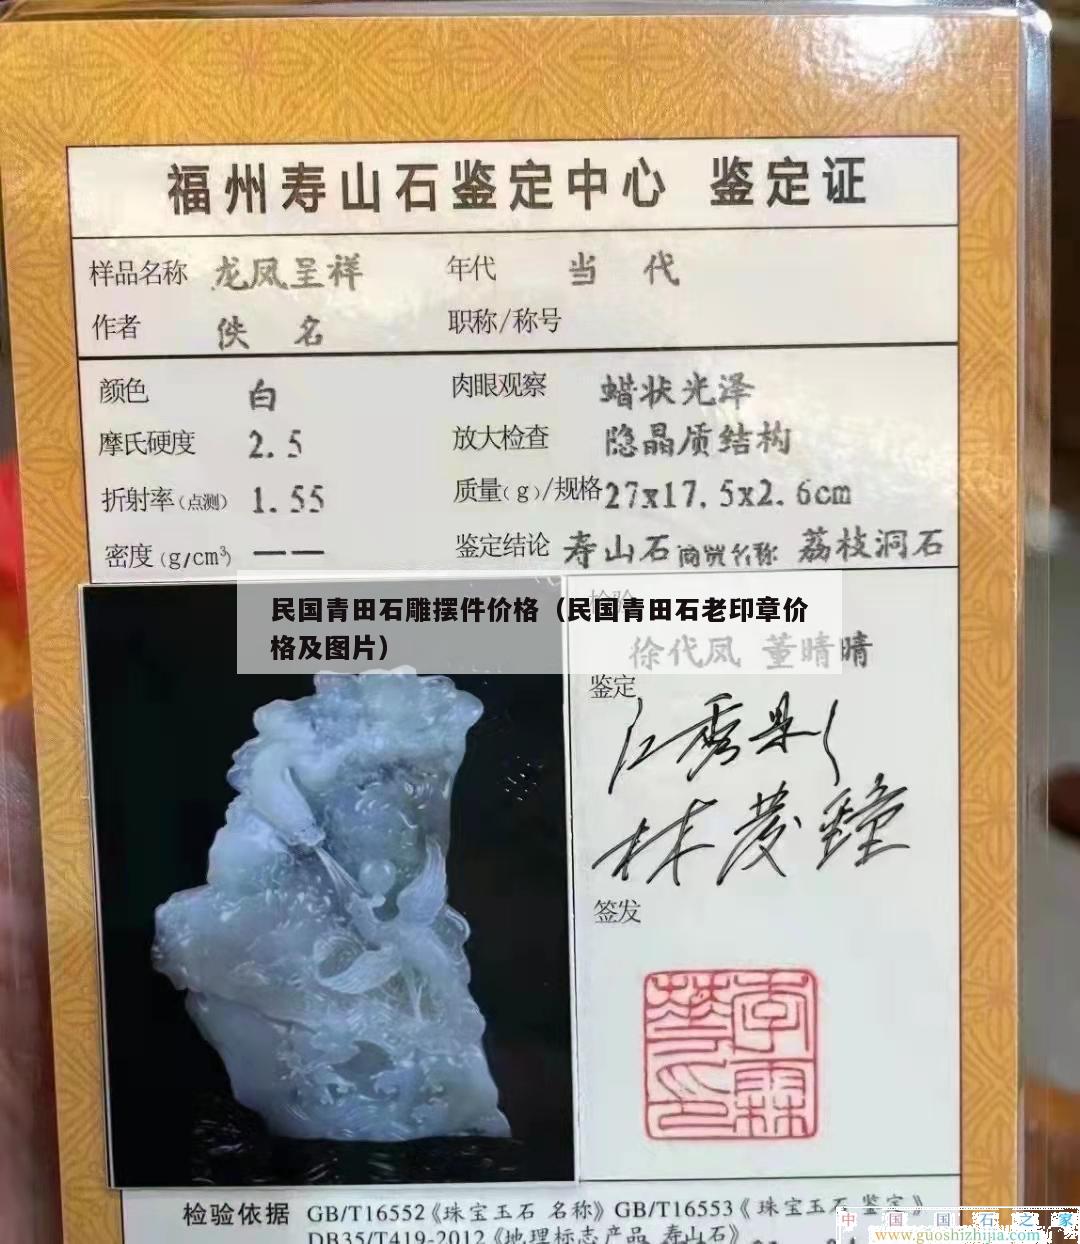 福州寿山石鉴定中心 鉴定证
样品名称 龙凤呈祥 年代 当 代
作者 佚 名 职称/称号
颜色 白 肉眼观察 蜡状光泽
摩氏硬度 2.5 放大检查 隐晶质结构
折射率(点测) 1.55 质量(g)/规格 27x17.5x2.6cm
密度(g/cm³) —— 鉴定结论 寿山石 商贸名称 荔枝洞石
民国青田石雕摆件价格（民国青田石老印章价
格及图片）
检验
徐代凤 董晴晴
鉴定
签发
检验依据 GB/T16552《珠宝玉石 名称》GB/T16553《珠宝玉石 鉴定》
DB35/T419-2012《地理标志产品 寿山石》
中国国石之家
www.guoshizhijia.com